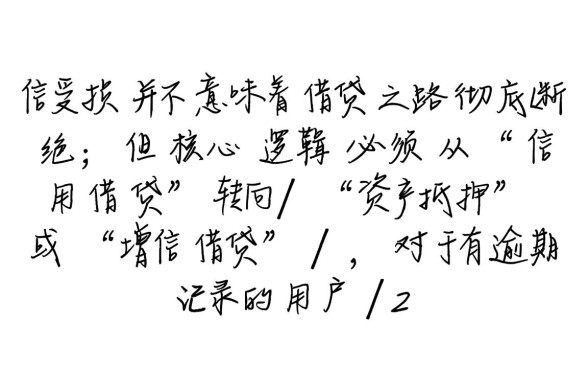 信受损并不意味着借贷之路彻底断
绝；但核心逻辑必须从“信
用借贷”转向/“资产抵押”
或“增信借贷”/，对于有逾期
记录的用户/2